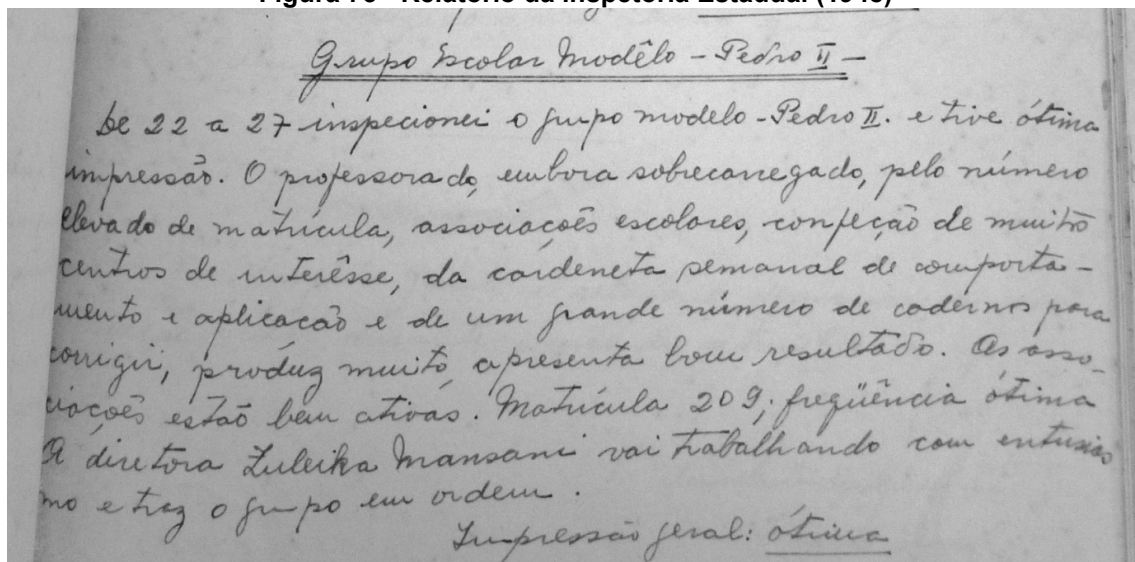 Grupo Escolar Modêlo - Pedro II -
De 22 a 27 inspecionei o grupo modelo - Pedro II. e tive ótima
impressão. O professorado, embora sobrecarregado, pelo número
elevado de matrícula, associações escolares, confeção de muitos
centros de interêsse, da cardeneta semanal de comporta-
mento e aplicação e de um grande número de cadernos para
corrigir, produz muito, apresenta bom resultado. As asso-
ciações estão bem ativas. Matrícula 209; freqüência ótima
A diretora Zuleika Mansani vai trabalhando com entusias
mo e traz o grupo em ordem.
Impressão geral: ótima